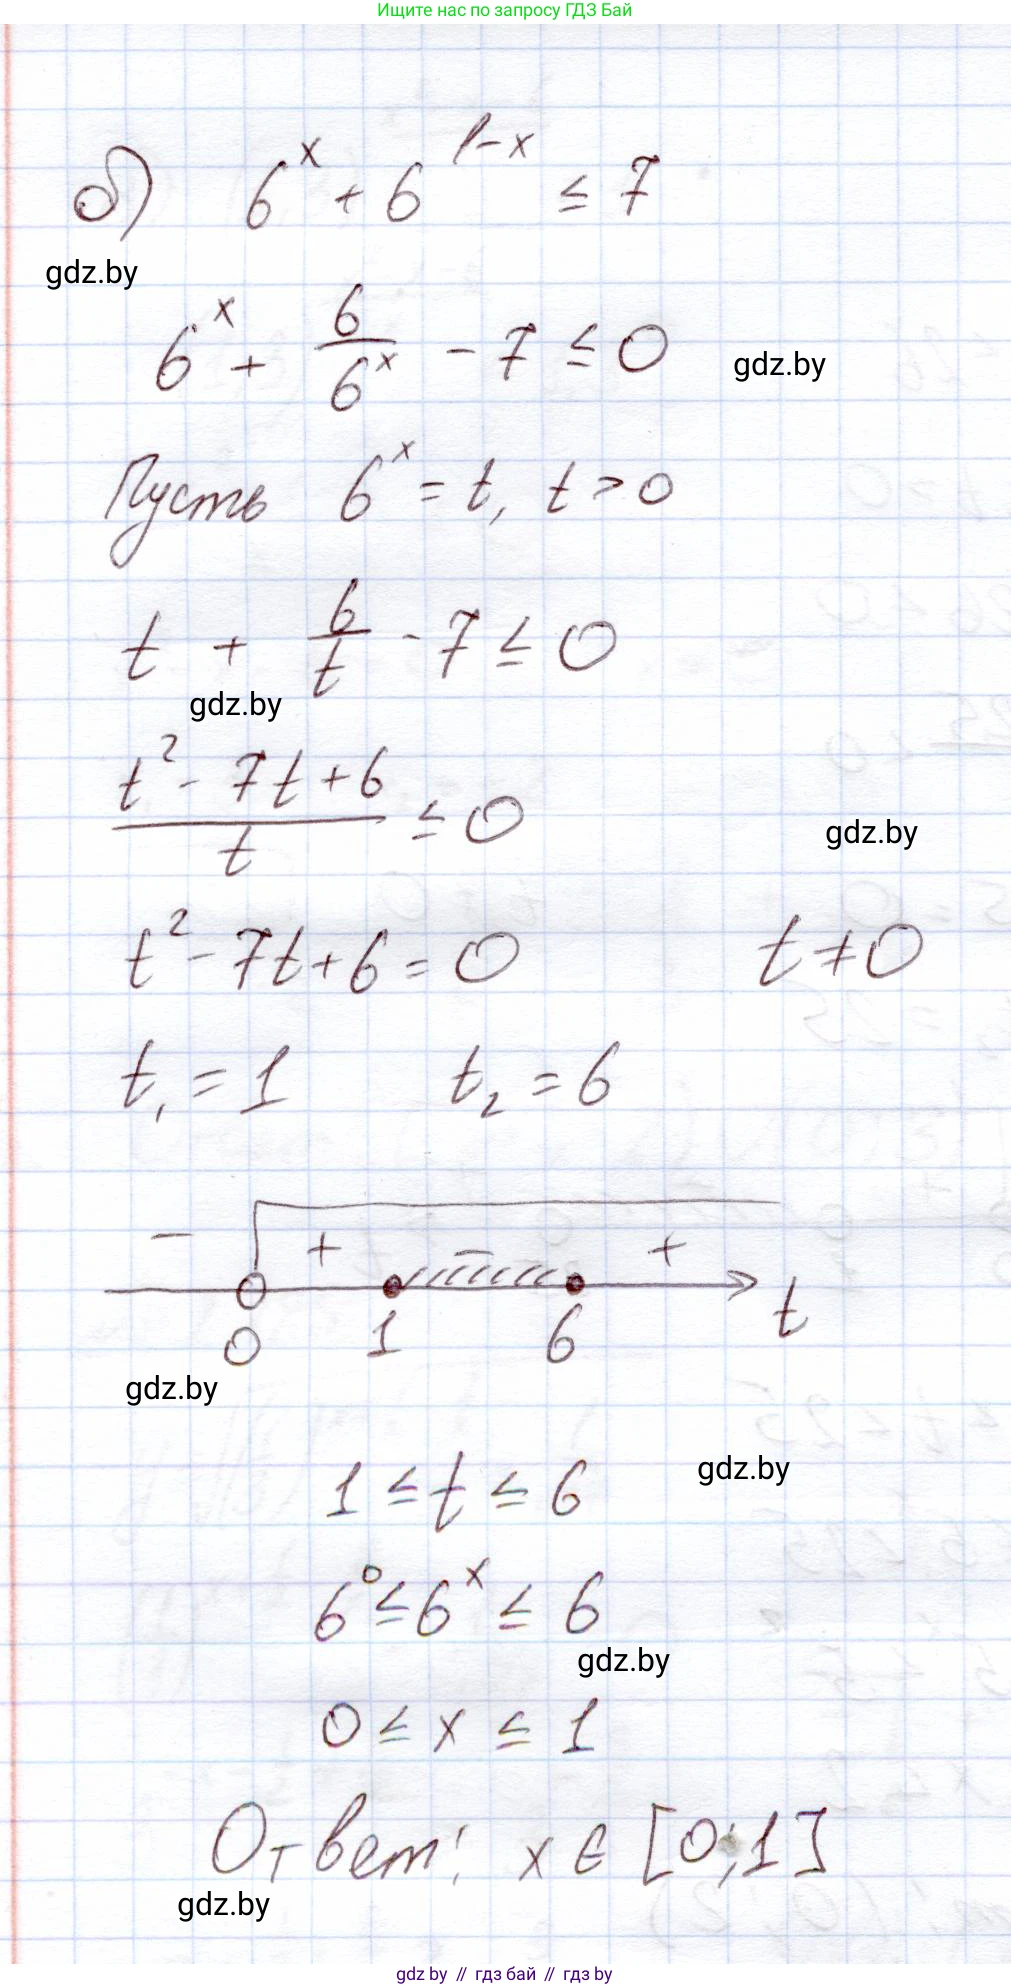 Ищите нас по запросу ГДЗ Бай
б) 6^x + 6^(1-x) ≤ 7
gdz.by
6^x + 6/6^x - 7 ≤ 0
gdz.by
Пусть 6^x = t, t > 0
t + 6/t - 7 ≤ 0
gdz.by
(t² - 7t + 6)/t ≤ 0
gdz.by
t² - 7t + 6 = 0 t ≠ 0
t₁ = 1 t₂ = 6
- + - +
0 1 6 t
gdz.by
1 ≤ t ≤ 6
gdz.by
6^0 ≤ 6^x ≤ 6
gdz.by
0 ≤ x ≤ 1
Ответ: x ∈ [0;1]
gdz.by
gdz by // гдз бай // гдз by